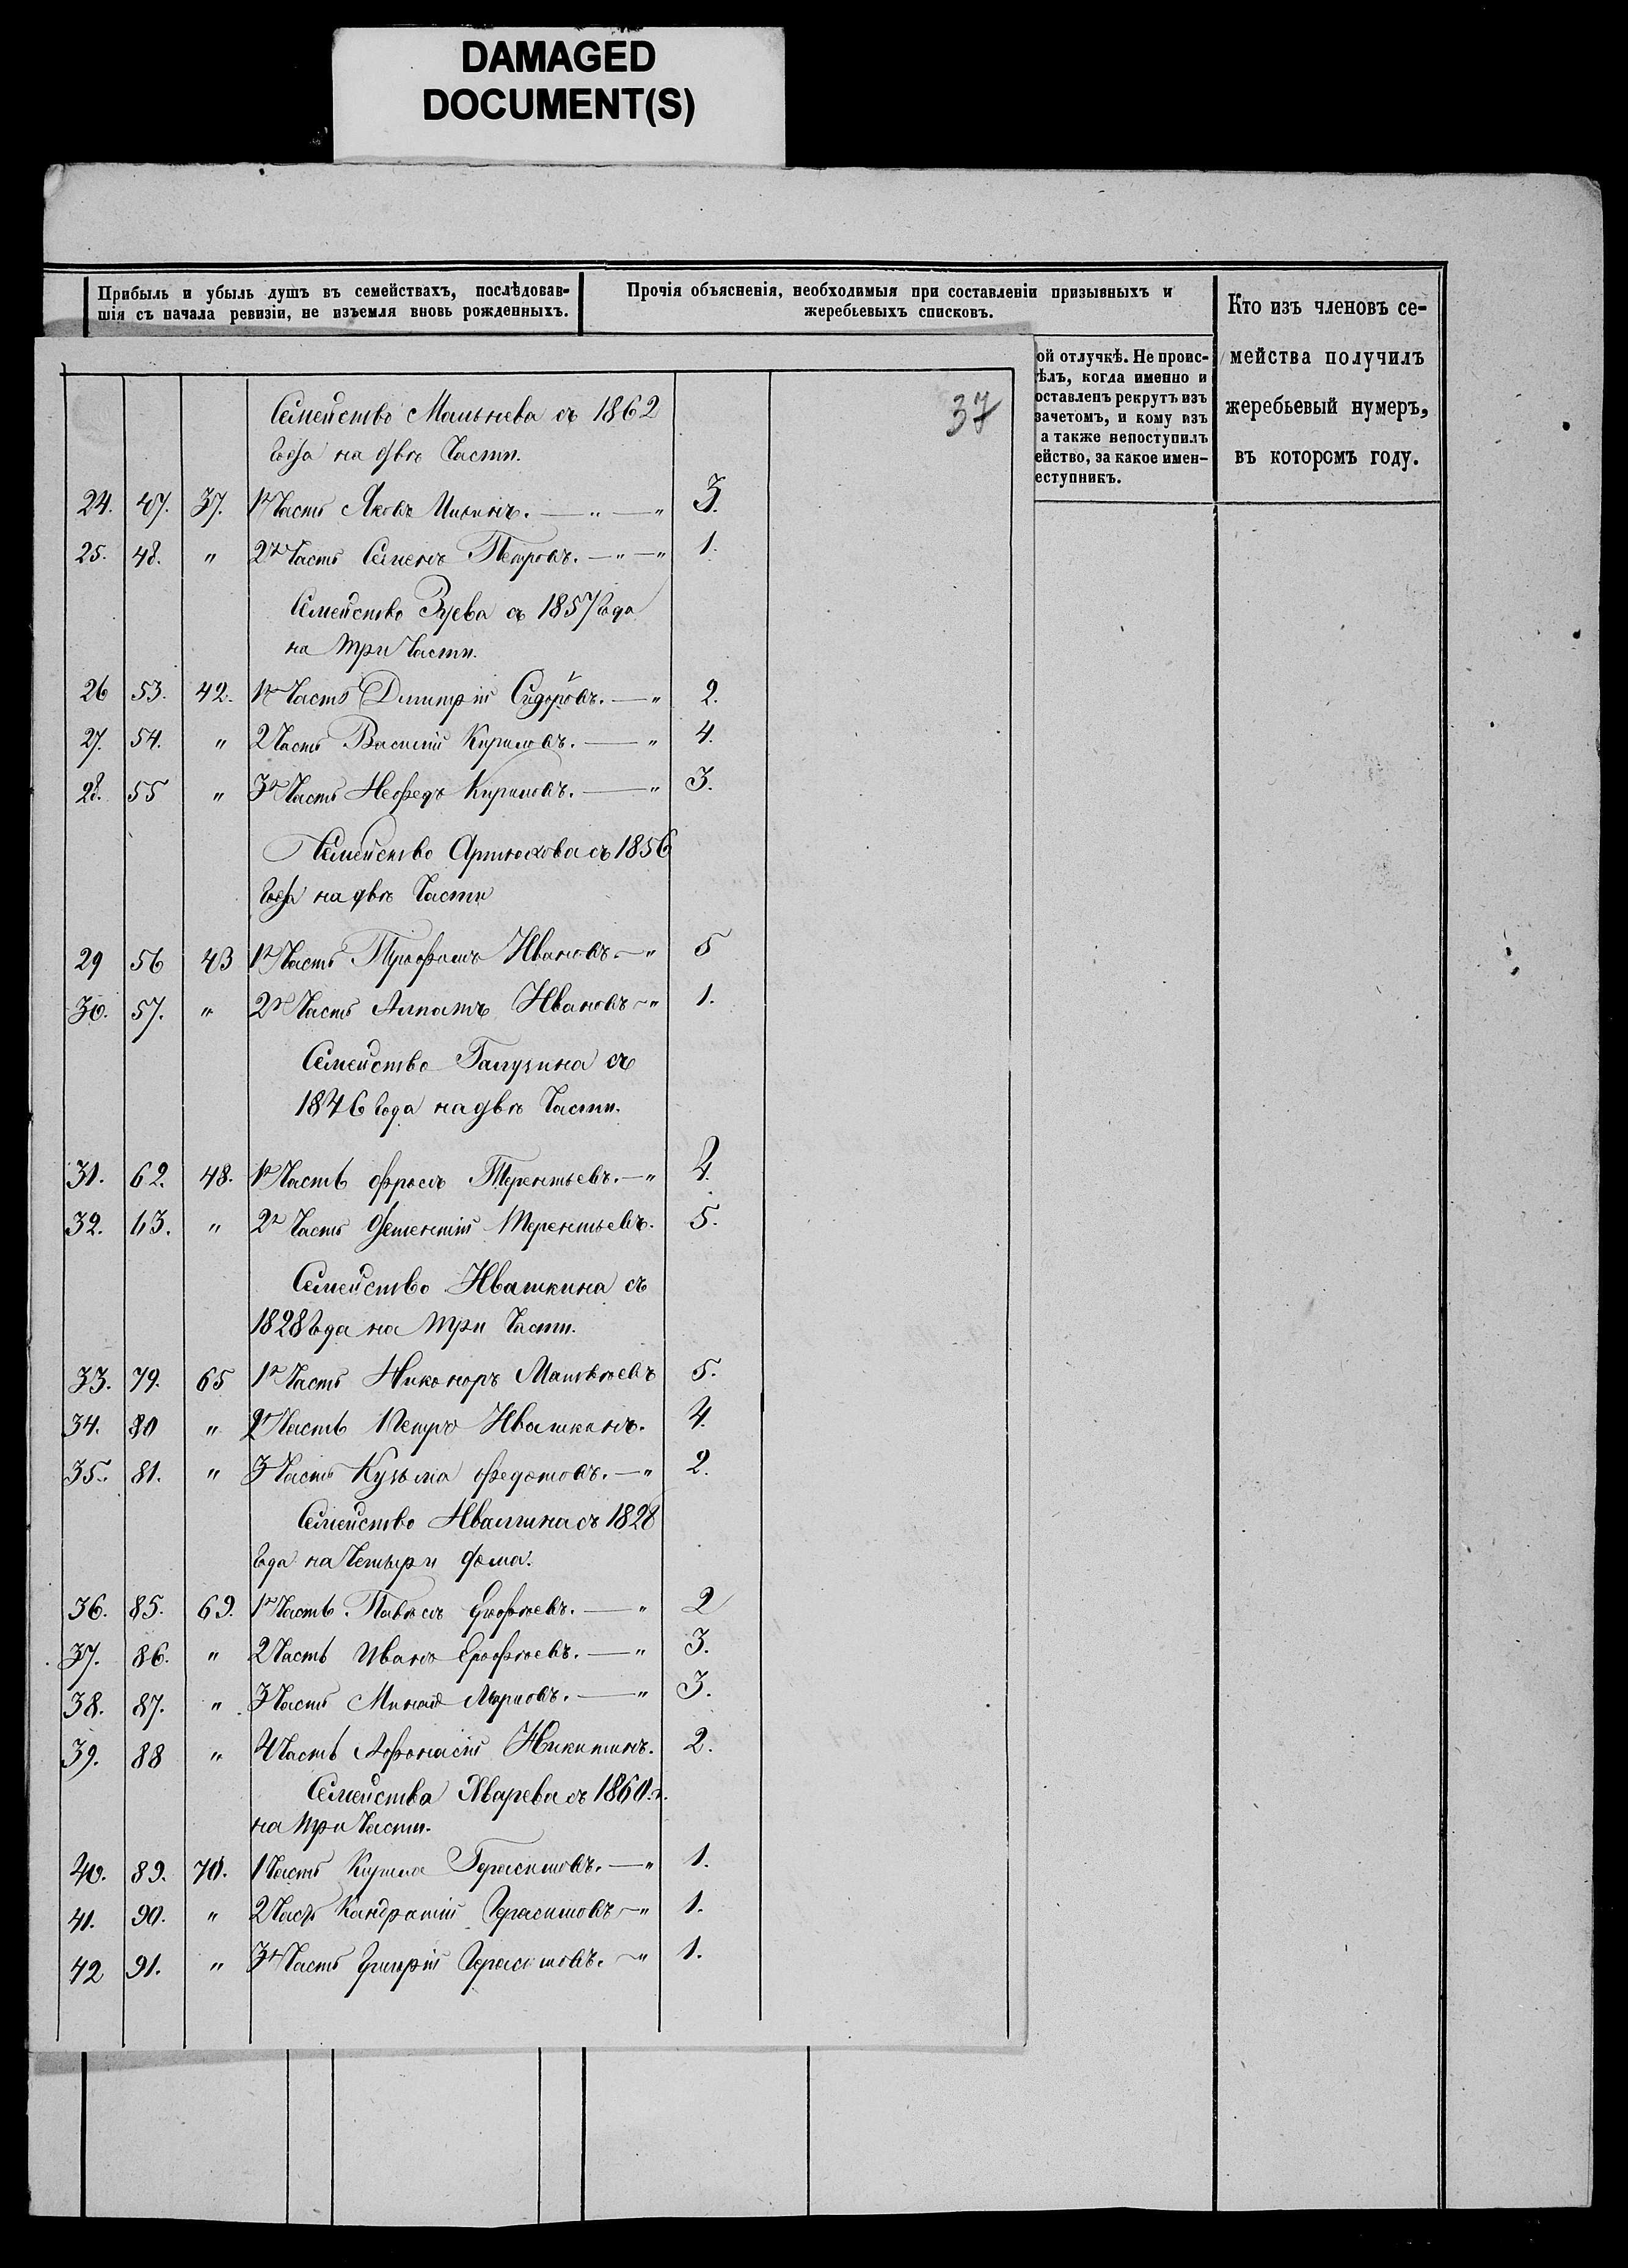 DAMAGED
DOCUMENT(S)
Прибыль и убыль душъ въ семействахъ, послѣдовав-
шія съ начала ревизіи, не изъемля вновь рожденныхъ.
Прочія объясненія, необходимыя при составленіи призывныхъ и
жеребьевыхъ списковъ.
Кто изъ членовъ се-
мейства получилъ
жеребьевый нумеръ,
въ которомъ году.
ой отлучкѣ. Не проис-
ѣлъ, когда именно и
оставленъ рекрутъ изъ
зачетомъ, и кому изъ
а также непоступилъ
ейство, за какое имен-
еступникъ.
37
Семейство Мальнева съ 1862
Года на двѣ Части.
24. 47. 37. 1я Часть Яковъ — " — " 3.
25. 48. " 2я Часть Семенъ Петровъ. — " — " 1.
Семейство Зуева съ 1857 Года
на три Части.
26 53. 42. 1я Часть Димитрій Сидоровъ. — " 2.
27. 54. " 2 Часть Василій Кириловъ. — " 4.
28. 55 " 3я Часть Нефедъ Кириловъ. — " 3.
Семейство Артюхова съ 1856
Года на двѣ Части
29 56 43 1я Часть Трофимъ Ивановъ. — " 5
30. 57. " 2я Часть Ивановъ — " 1.
Семейство Галузина съ
1846 Года на двѣ Части.
31. 62. 48. 1я Часть Фролъ Терентьевъ. — " 4.
32. 63. " 2я Часть Терентьевъ. 5.
Семейство Ивашкина съ
1828 Года на три Части.
33. 79. 65 1я Часть Никоноръ Матвѣевъ 5.
34. 80 " 2я Часть Петръ Ивашкинъ. 4.
35. 81. " 3 Часть Кузьма Федотовъ. — " 2.
Семейство съ 1828
Года на Четыри дома.
36. 85. 69. 1я Часть Павелъ Ерофѣевъ. — " 2
37. 86. " 2 Часть Иванъ Ерофѣевъ. — " 3.
38. 87. " 3 Часть Минай — " 3.
39. 88 " 4 Часть Афонасій Никитинъ. 2.
Семейства Хварева съ 1860 г.
на три Части.
40. 89. 70. 1 Часть Кирила Герасимовъ. — " 1.
41. 90. " 2 Часть Кандратій Герасимовъ — " 1.
42 91. " 3я Часть Григорій Герасимовъ. — " 1.